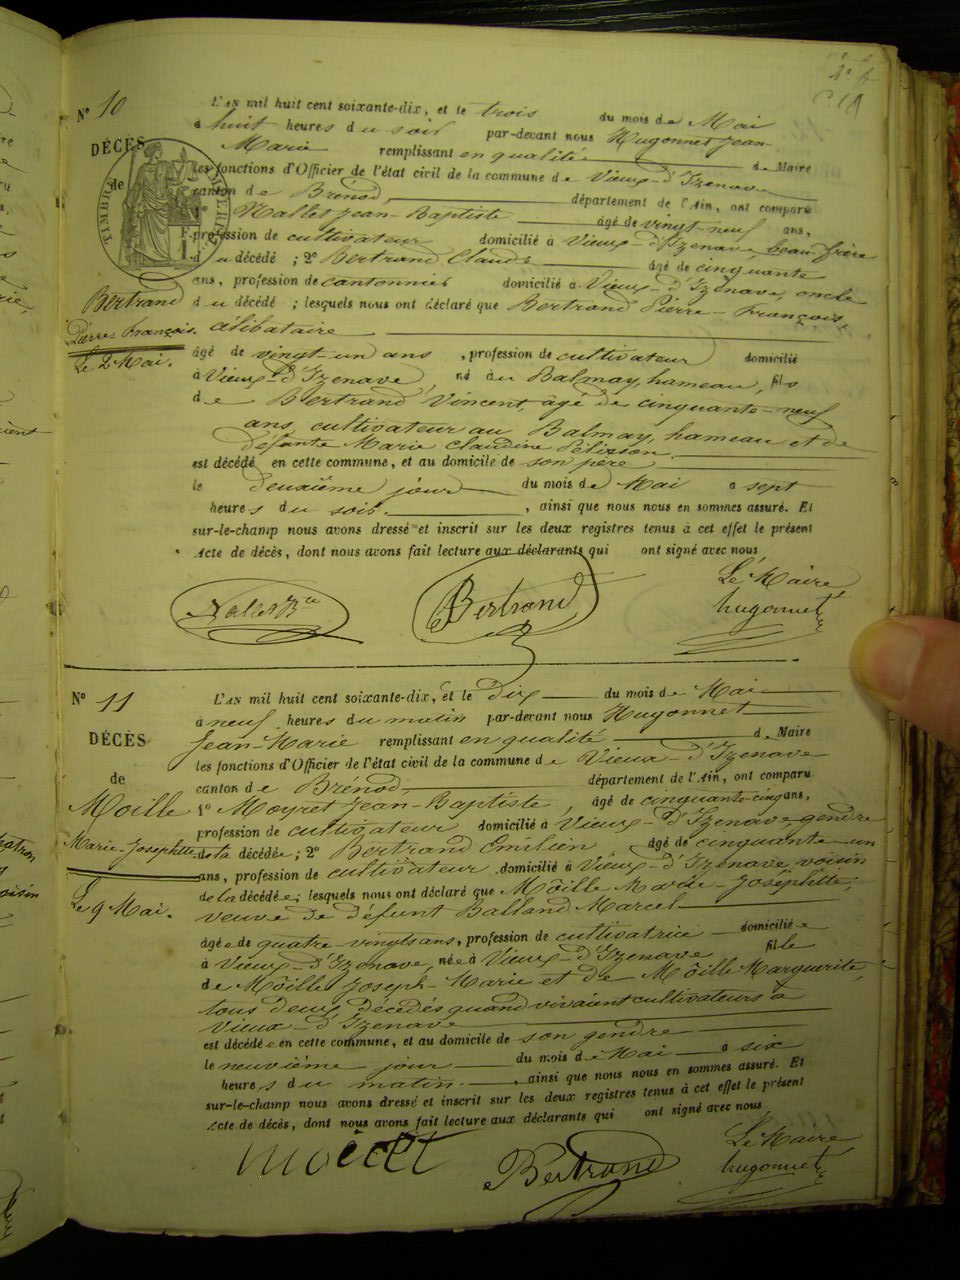 N° 10
DÉCÈS
de
TIMBRE IMPÉRIAL
Bertrand
Pierre-François.
Le 2 Mai.
L'AN mil huit cent soixante-dix, et le trois du mois de Mai
à huit heures du soir par-devant nous Hugonnet Jean
Marie remplissant en qualité de Maire
les fonctions d'Officier de l'état civil de la commune de Vieux-d'Izenave
canton de Brénod, département de l'Ain, ont comparu
1° Nallet Jean-Baptiste âgé de vingt-neuf ans,
profession de cultivateur domicilié à Vieux-d'Izenave, beau-frère
du décédé ; 2° Bertrand Claude âgé de cinquante
ans, profession de cantonnier domicilié à Vieux-d'Izenave, oncle
du décédé ; lesquels nous ont déclaré que Bertrand Pierre-François,
célibataire
âgé de vingt un ans , profession de cultivateur domicilié
à Vieux-d'Izenave, né au Balmay, hameau, fils
de Bertrand Vincent, âgé de cinquante-neuf
ans, cultivateur au Balmay, hameau et de
défunte Marie Claudine Pélisson
est décédé en cette commune, et au domicile de son père
le deuxième jour du mois de Mai à sept
heures du soir. , ainsi que nous nous en sommes assuré. Et
sur-le-champ nous avons dressé et inscrit sur les deux registres tenus à cet effet le présent
Acte de décès, dont nous avons fait lecture aux déclarants qui ont signé avec nous
Le Maire
Nallet Bertrand hugonnet
N° 11
DÉCÈS
de
Moille
Marie-Josephtte
Le 9 Mai.
L'AN mil huit cent soixante-dix, et le dix du mois de Mai
à neuf heures du matin par-devant nous Hugonnet
Jean-Marie remplissant en qualité de Maire
les fonctions d'Officier de l'état civil de la commune de Vieux-d'Izenave
canton de Brénod département de l'Ain, ont comparu
1° Moyret Jean-Baptiste , âgé de cinquante-cinq ans,
profession de cultivateur domicilié à Vieux-d'Izenave gendre
de la décédée ; 2° Bertrand Emilien âgé de cinquante-un
ans, profession de cultivateur domicilié à Vieux-d'Izenave, voisin
de la décédée ; lesquels nous ont déclaré que Moille Marie-Josephtte,
veuve de défunt Balland Marcel
âgée de quatre-vingts ans, profession de cultivatrice domiciliée
à Vieux-d'Izenave, née à Vieux-d'Izenave fille
de Moille Joseph-Marie et de Moille Marguerite,
tous deux décédés quand vivaient cultivateurs à
Vieux-d'Izenave
est décédée en cette commune, et au domicile de son gendre
le neuvième jour du mois de Mai à six
heures du matin. , ainsi que nous nous en sommes assuré. Et
sur-le-champ nous avons dressé et inscrit sur les deux registres tenus à cet effet le présent
Acte de décès, dont nous avons fait lecture aux déclarants qui ont signé avec nous
Le Maire
Bertrand hugonnet